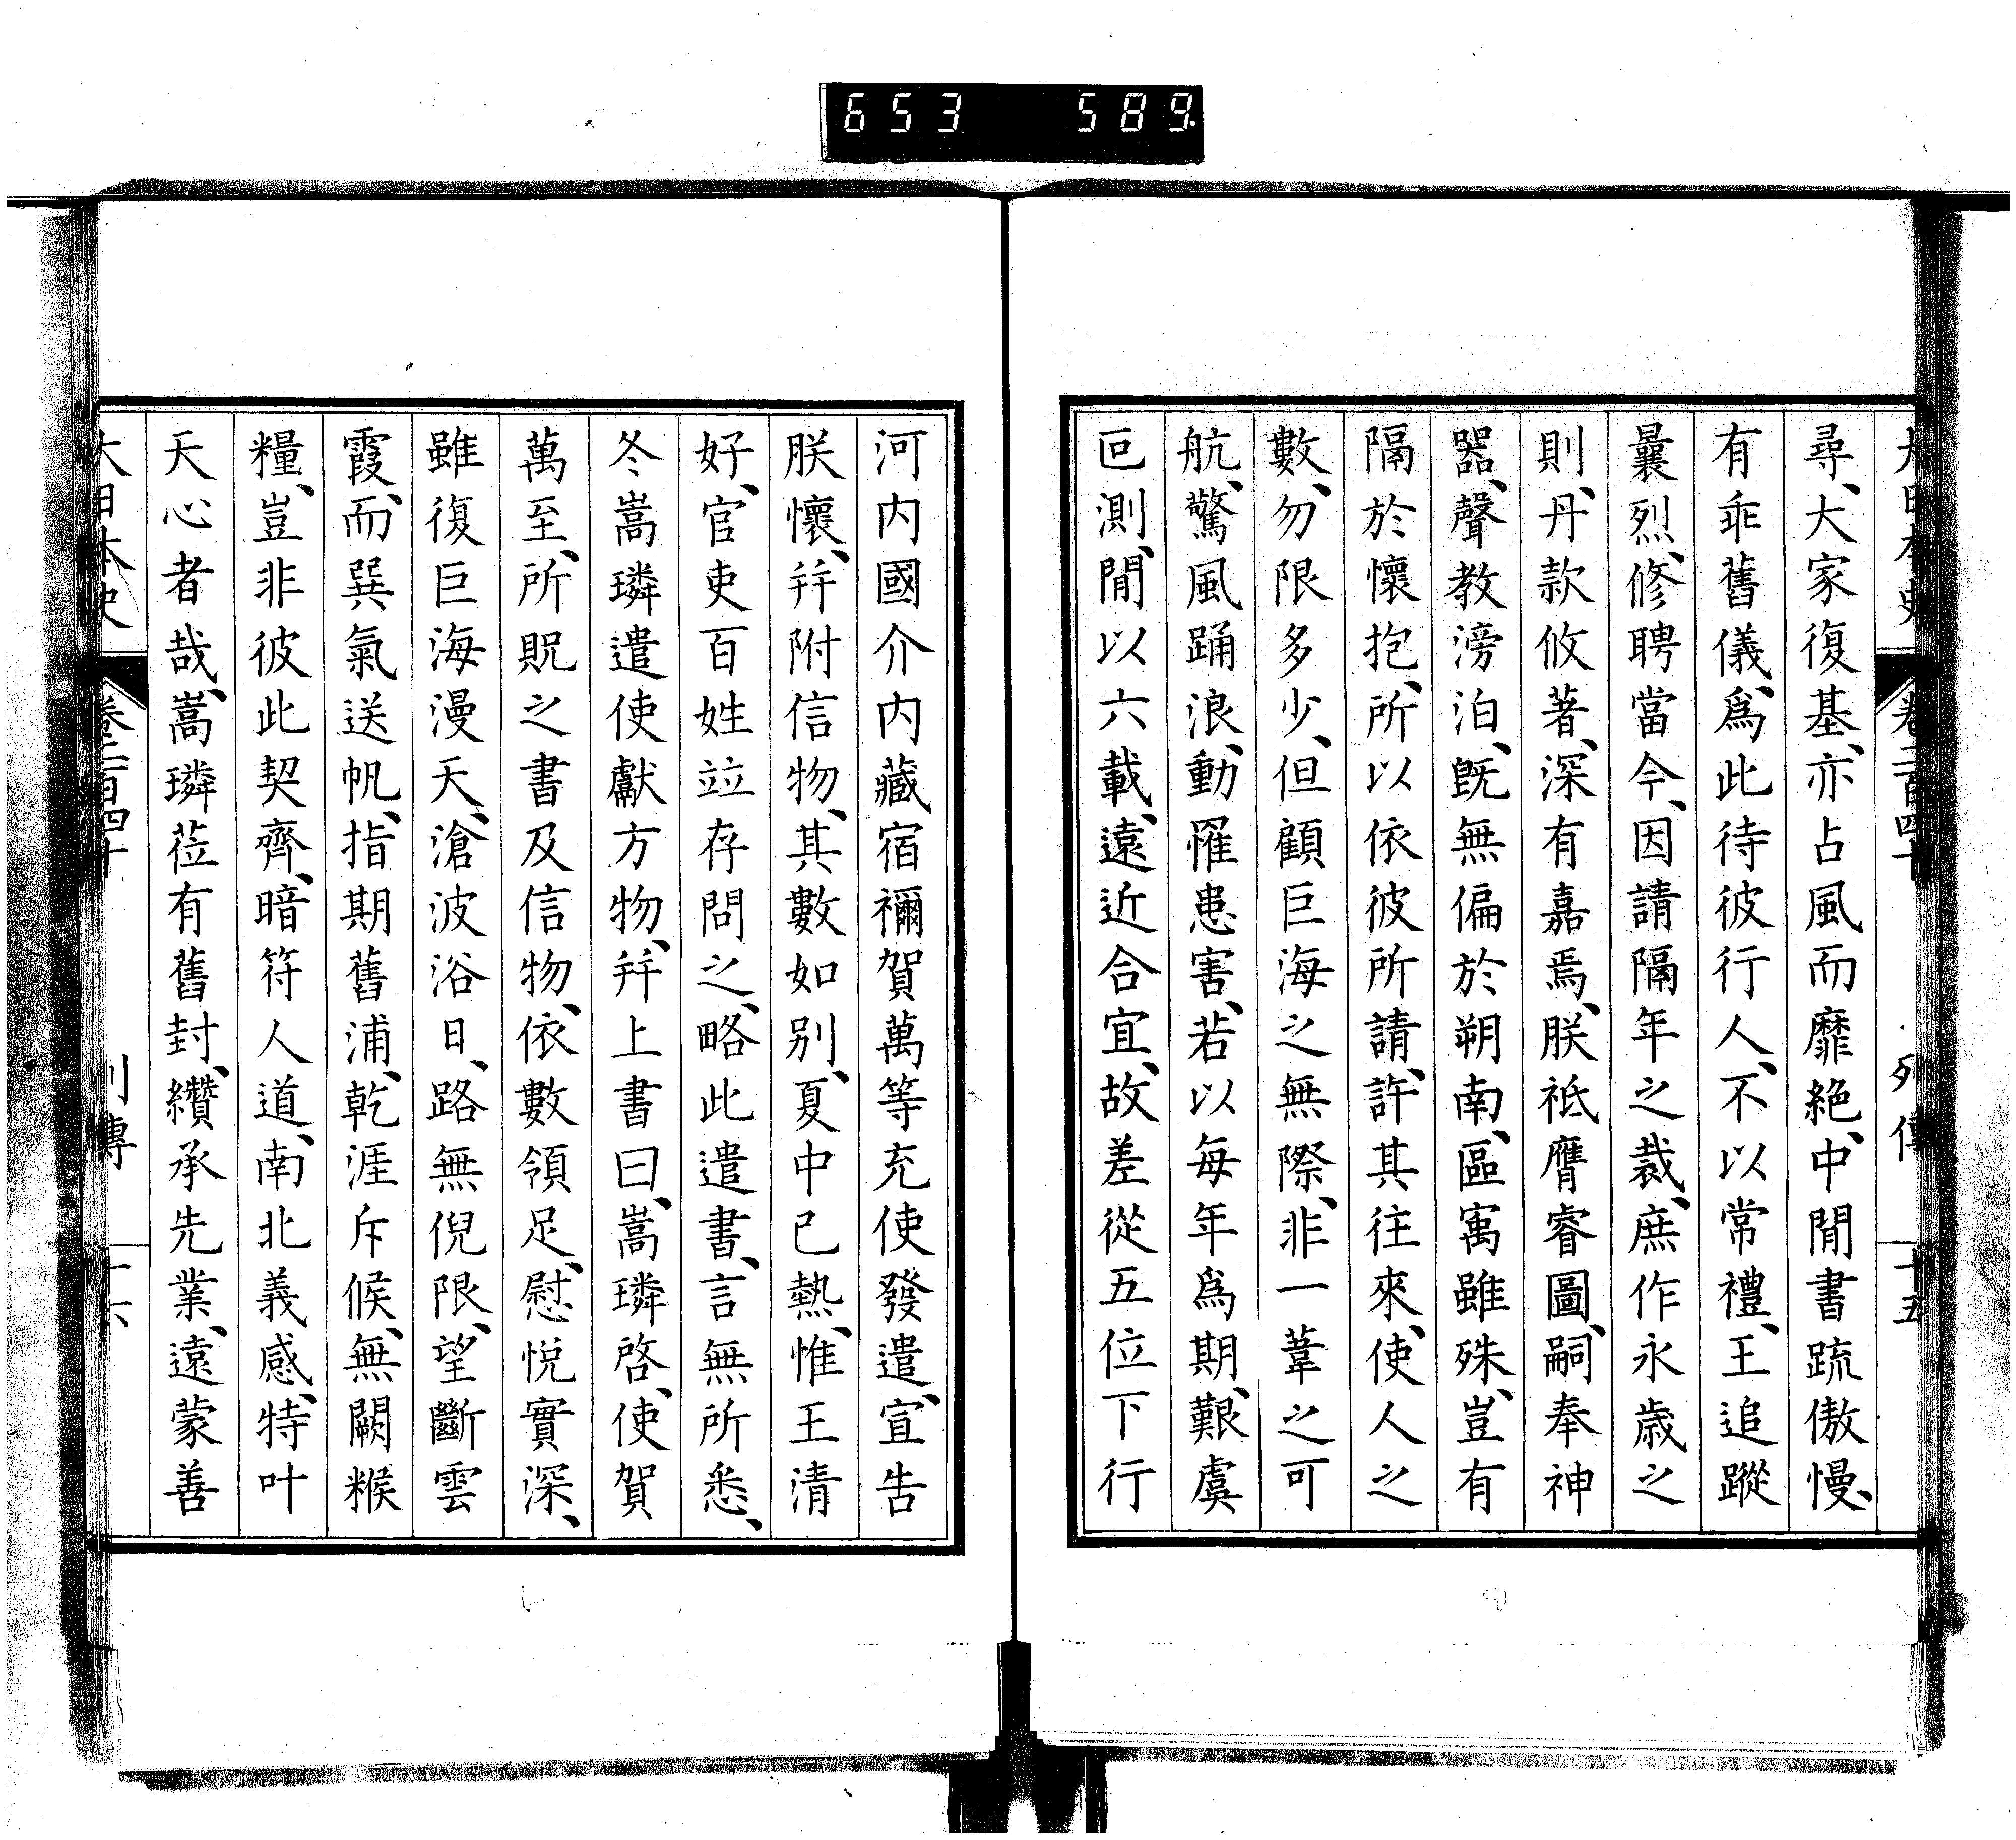 653 589
大日本史 卷二百四十 列傳 十五
尋、大家復基、亦占風而靡絕、中閒書疏傲慢、
有乖舊儀、爲此待彼行人、不以常禮、王追蹤
曩烈、修聘當今、因請隔年之裁、庶作永歲之
則、丹款攸著、深有嘉焉、朕祗膺睿圖、嗣奉神
器、聲教滂泊、旣無偏於朔南、區寓雖殊、豈有
隔於懷抱、所以依彼所請、許其往來、使人之
數、勿限多少、但顧巨海之無際、非一葦之可
航、驚風踊浪、動罹患害、若以每年爲期、艱虞
叵測、閒以六載、遠近合宜、故差從五位下行
河内國介内藏宿禰賀萬等充使發遣、宣告
朕懷、幷附信物、其數如別、夏中已熱、惟王清
好、官吏百姓竝存問之、略此遣書、言無所悉、
冬嵩璘遣使獻方物、幷上書曰、嵩璘啓、使賀
萬至、所貺之書及信物、依數領足、慰悅實深、
雖復巨海漫天、滄波浴日、路無倪限、望斷雲
霞、而巽氣送帆、指期舊浦、乾涯斥候、無闕糇
糧、豈非彼此契齊、暗符人道、南北義感、特叶
天心者哉、嵩璘莅有舊封、纘承先業、遠蒙善
大日本史 卷二百四十 列傳 十六